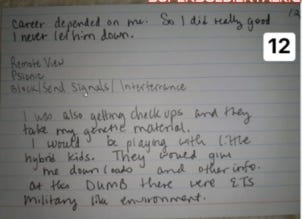 career depended on me. So I did really good
I never let him down.
12
Remote View
Psionic
Block/Send Signals/Interferrance
I was also getting check ups and they
take my genetic material.
I would be playing with little
hybrid kids. They would give
me downloads and other info.
At the DUMB there were ETS
Military like environment.